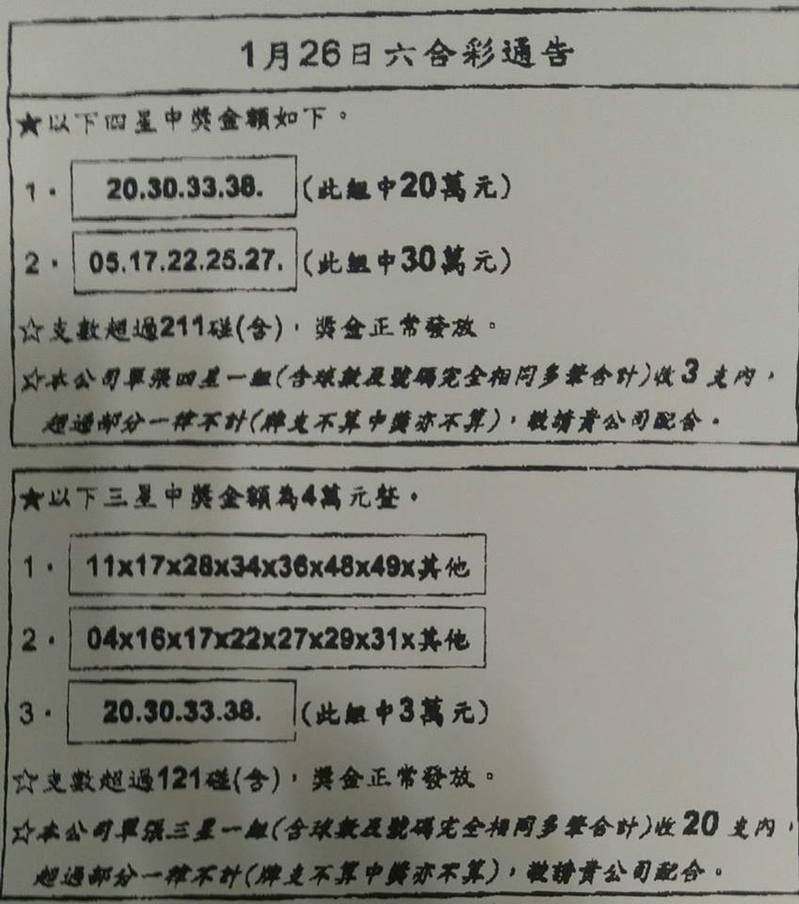 1月26日六合彩通告
★以下四星中獎金額如下。
1. 20.30.33.38. (此組中20萬元)
2. 05.17.22.25.27. (此組中30萬元)
☆支數超過211碰(含),獎金正常發放。
☆本公司單張四星一組(含球數及號碼完全相同多筆合計)收3支內,
超過部分一律不計(牌支不算中獎亦不算),敬請貴公司配合。
★以下三星中獎金額為4萬元整。
1. 11x17x28x34x36x48x49x其他
2. 04x16x17x22x27x29x31x其他
3. 20.30.33.38. (此組中3萬元)
☆支數超過121碰(含),獎金正常發放。
☆本公司單張三星一組(含球數及號碼完全相同多筆合計)收20支內,
超過部分一律不計(牌支不算中獎亦不算),敬請貴公司配合。